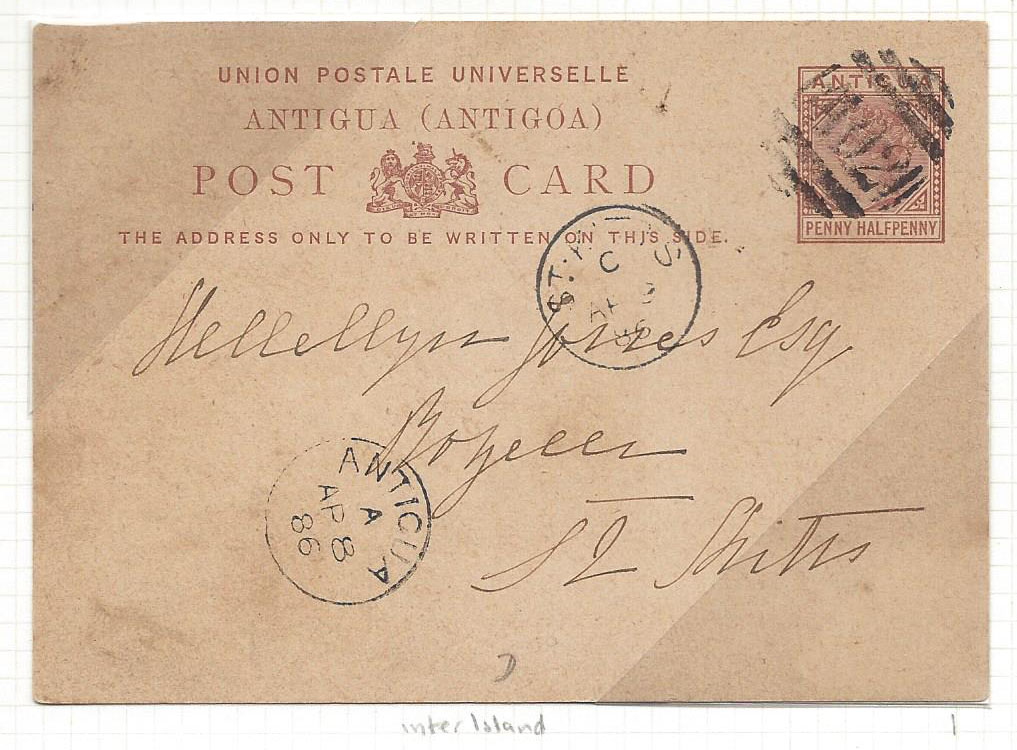 UNION POSTALE UNIVERSELLE
ANTIGUA (ANTIGOA)
POST CARD
THE ADDRESS ONLY TO BE WRITTEN ON THIS SIDE.
ANTIGUA
A02
PENNY HALFPENNY
ST. KITTS
C
AP
86
Jones Esq
St Kitts
ANTIGUA
A
AP 8
86
inter Island
1